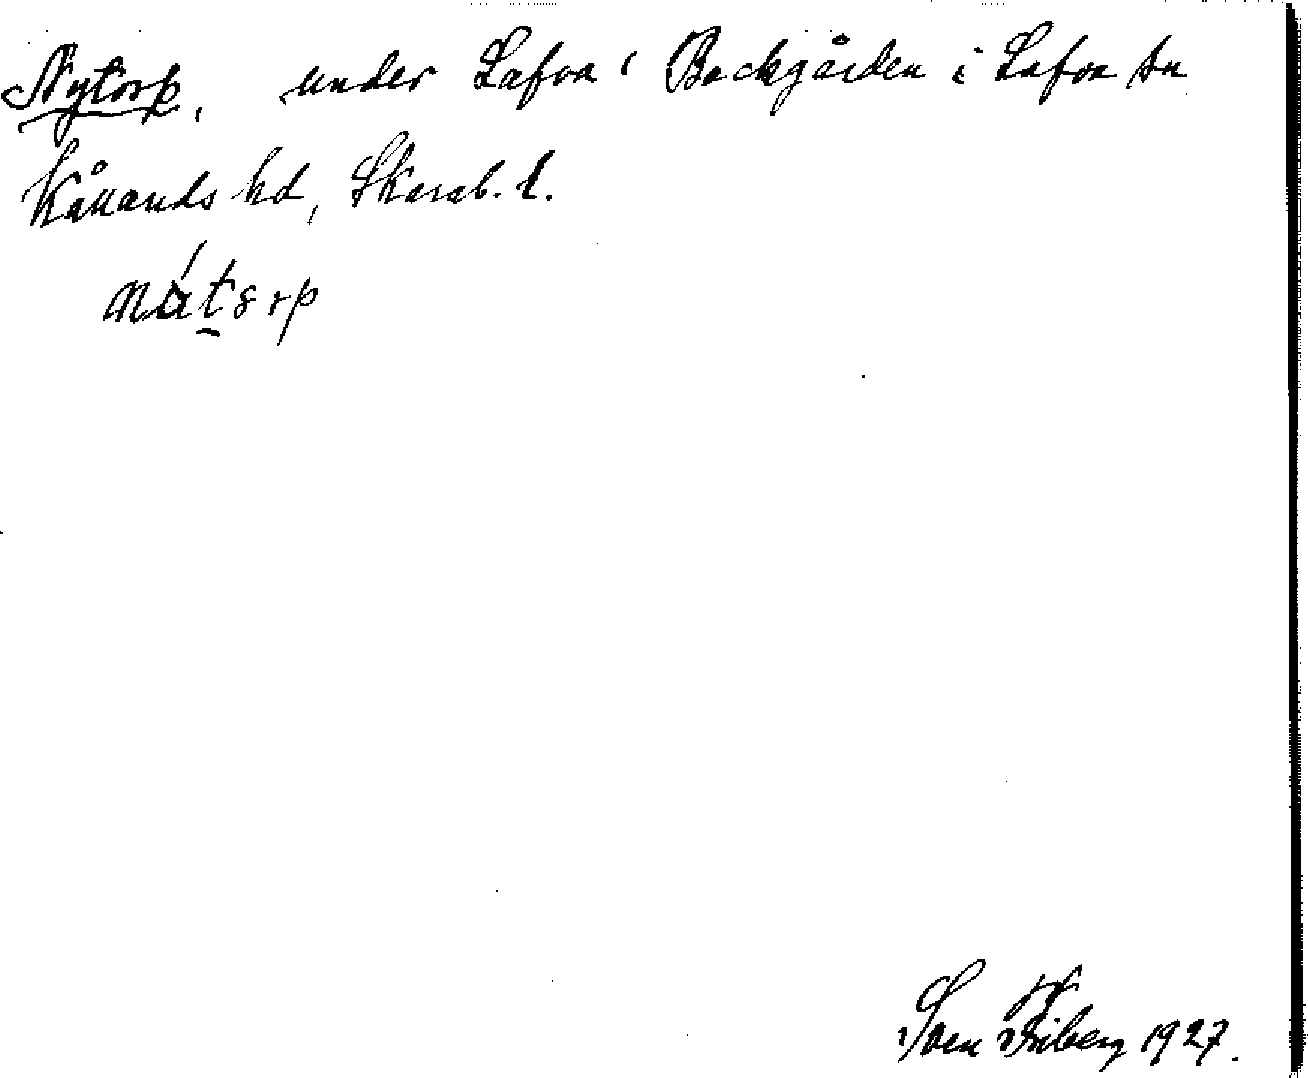 Nytorp, under Lafva, Backgården i Lafva sn
Kållands hd, Skarab. l.
nátorp
Sven Friberg 1927.